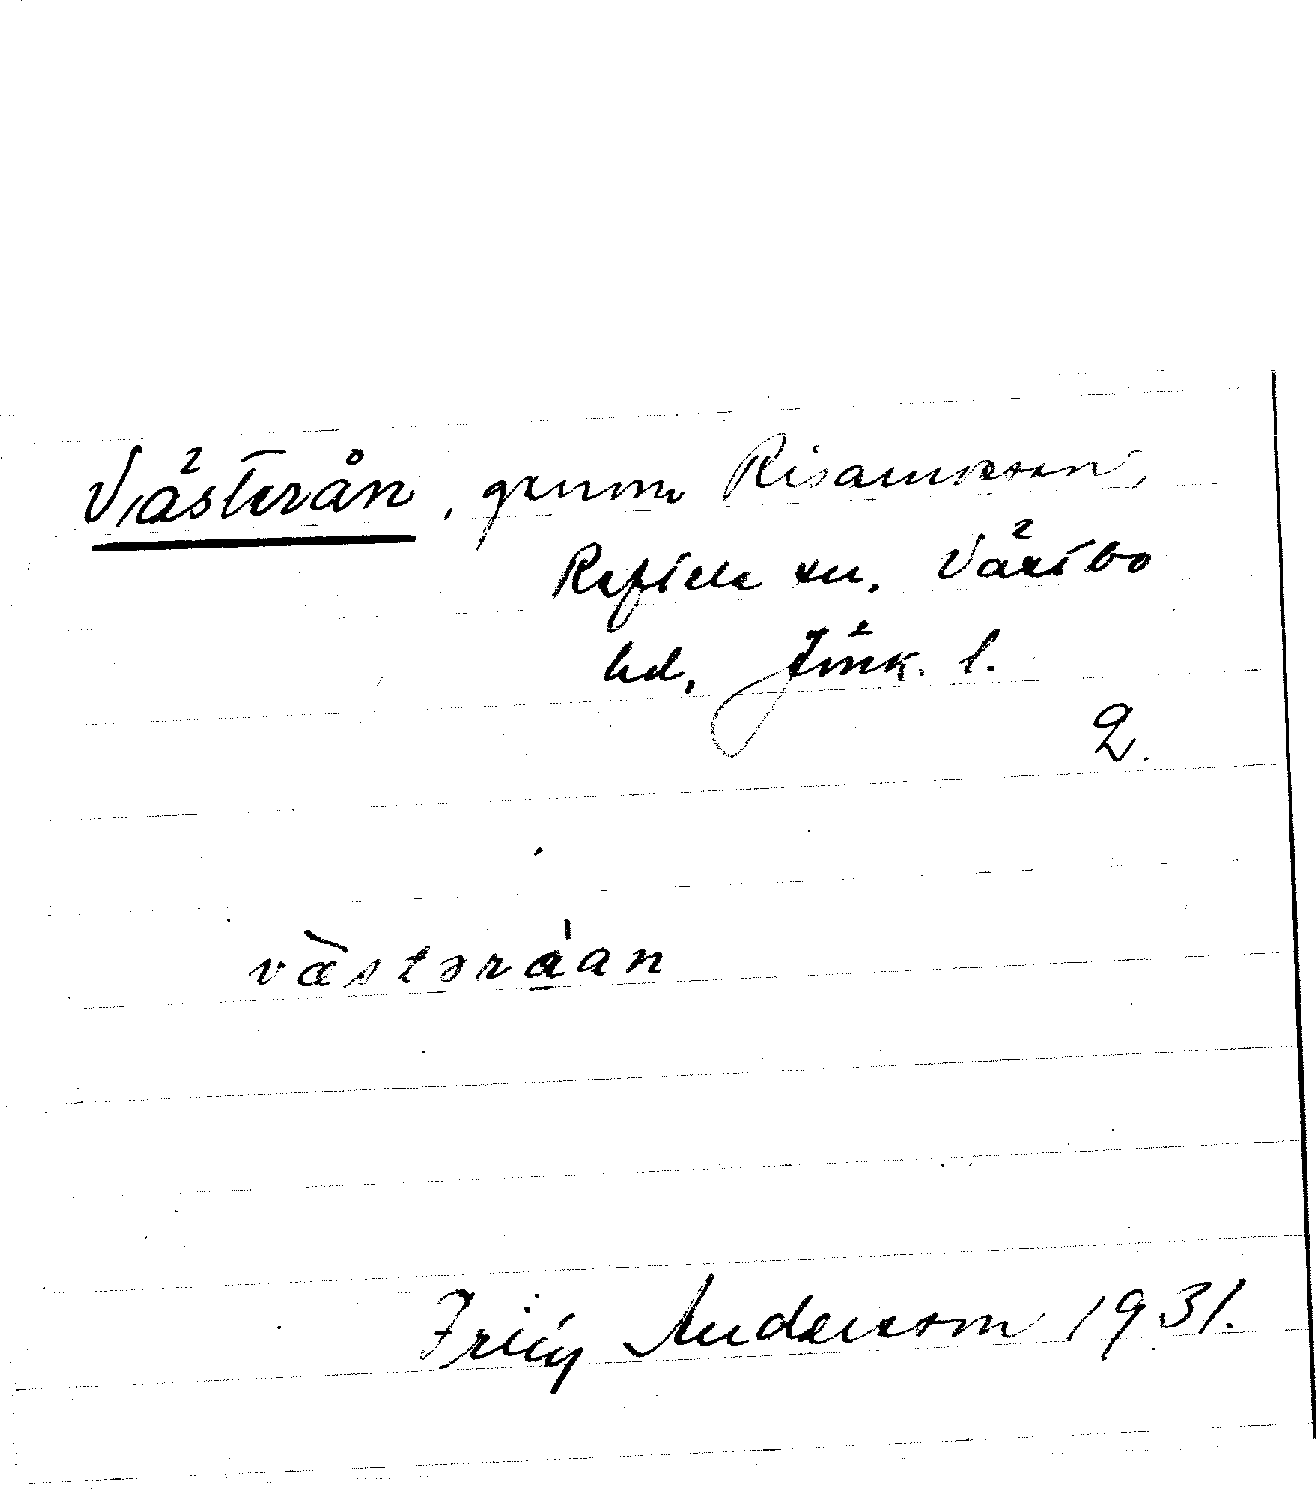 Västerån, genom Risamossen,
Reftele sn. Västbo
hd, Jönk. l.
2.
västəråan
Andersson 1931.